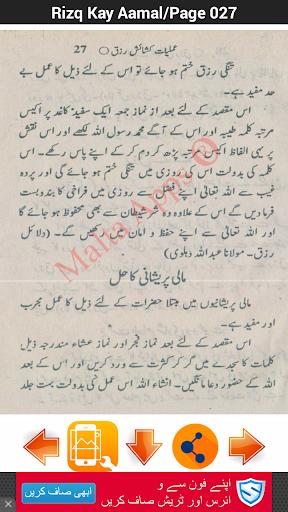 Rizq Kay Aamal/Page 027
عملیات کشائش رزق 27
تنگی رزق ختم ہو جائے تو اس کے لئے ذیل کا عمل بے
حد مفید ہے۔
اس مقصد کے لئے بعد از نماز جمعہ ایک سفید کاغذ پر اکیس
مرتبہ کلمہ طیبہ اور اس کے آگے محمد رسول اللہ لکھے اور اس نقش
پر یہی الفاظ اکیس مرتبہ پڑھ کر دم کر کے اپنے پاس رکھے۔ اس
کلمہ کی بدولت اس کی روزی میں تنگی ختم ہو جائے گی اور پردہ
غیب سے اللہ تعالیٰ اپنے فضل سے روزی میں فراخی کا بندوبست
فرما دیں گے اس کے علاوہ وہ شر شیطان سے بھی محفوظ ہو جائے گا
اور اللہ تعالیٰ اسے اپنے حفظ و امان میں رکھیں گے۔ (دلائل
رزق۔ مولانا عبداللہ دہلوی)
مالی پریشانی کا حل
مالی پریشانیوں میں مبتلا حضرات کے لئے ذیل کا عمل مجرب
اور مفید ہے۔
اس مقصد کے لئے بعد نماز فجر اور نماز عشاء مندرجہ ذیل
کلمات کا سجدے میں گر کر کثرت سے ورد کریں اور اس کے بعد
اللہ کے حضور دعا مانگیں۔ انشاء اللہ اس عمل کی بدولت بہت جلد
Malta Apps
اپنے فون سے و
ائرس اور ٹریش صاف کریں
ابھی صاف کریں